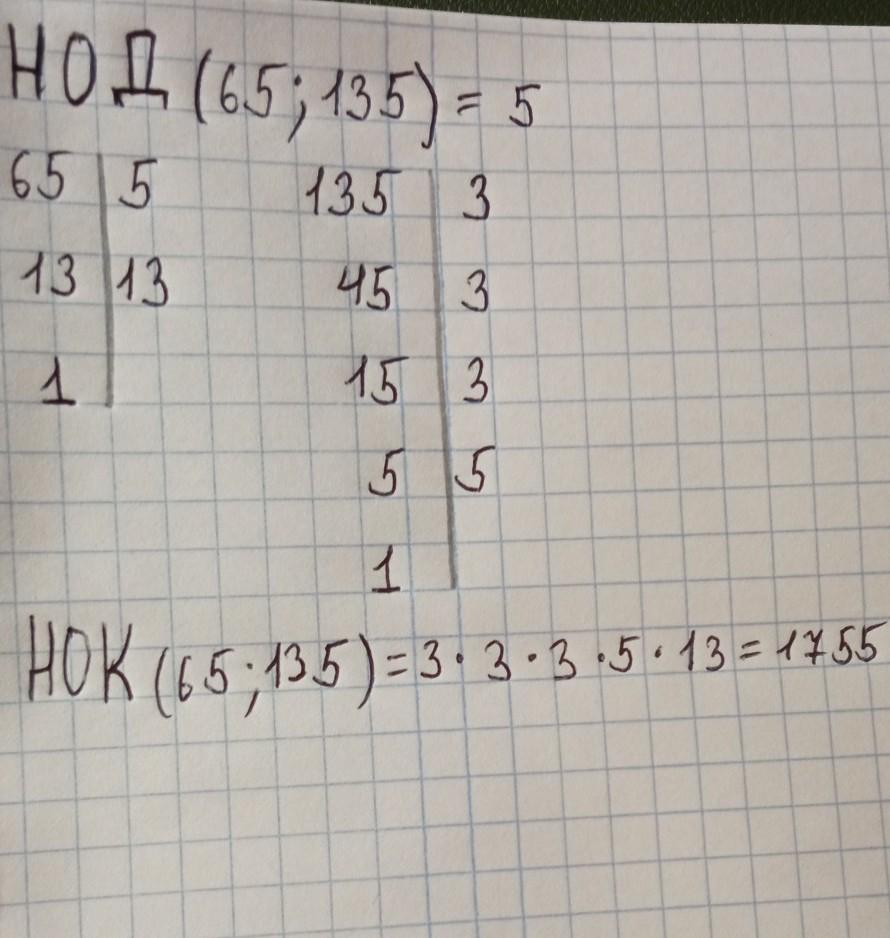 НОД (65; 135) = 5
65 | 5 135 | 3
13 | 13 45 | 3
1 | 15 | 3
5 | 5
1 |
НОК (65; 135) = 3 · 3 · 3 · 5 · 13 = 1755